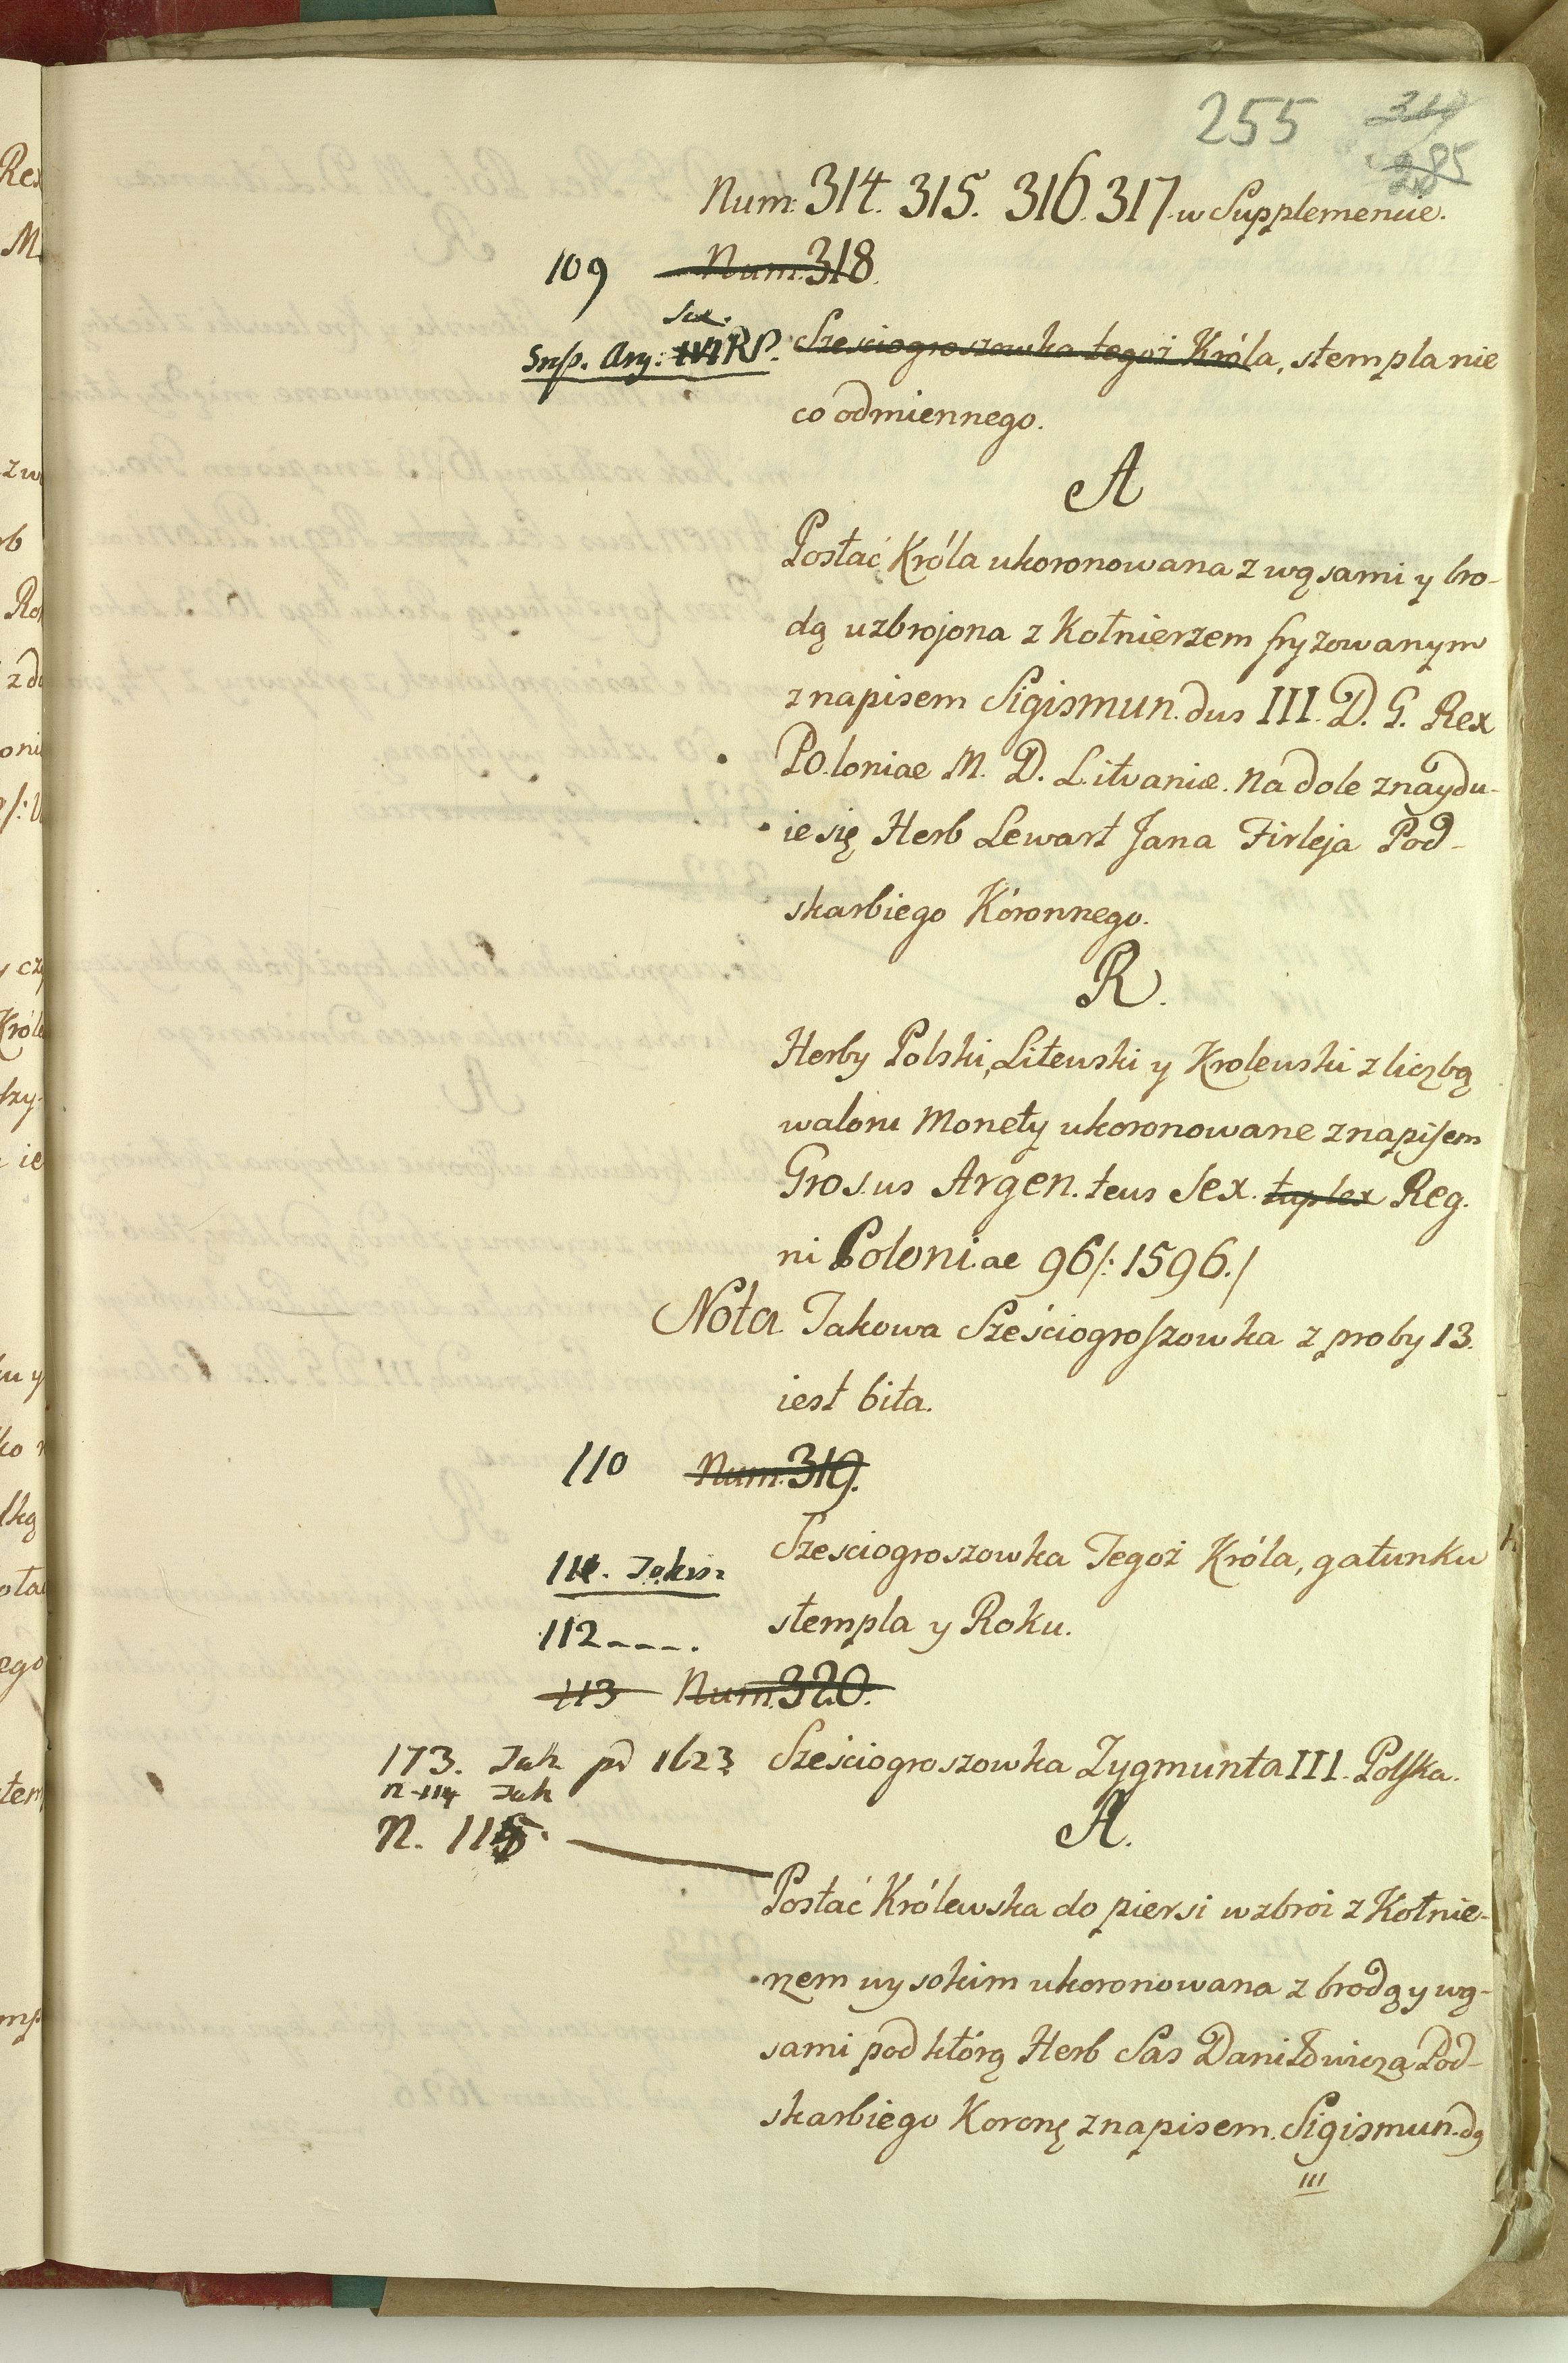 255 319
285
Num: 314. 315. 316. 317. w Supplemencie.
109 Num. 318.
Sex.
Srp. Arg: RP. Szesciogroszowka tegoż Króla, stempla nie
co odmiennego.
A
Postać Króla ukoronowana z wąsami y bro-
dą uzbrojona z Kołnierzem fryzowanym
z napisem Sigismun.dus III. D. G. Rex
Po.loniae M. D. Litvaniæ. Na dole znaydu-
ie się Herb Lewart Jana Firleja Pod-
skarbiego Kóronnego.
R.
Herby Polski, Litewski y Krolewski z liczbą
waloru Monety ukoronowane z napisem
Gros.us Argen.teus Sex. tuplex Reg.
ni Poloni.ae 96/: 1596./
Nota Takowa Sześciogroszowka z proby 13.
iest bita.
110 Num. 319.
Szesciogroszowka Tegoż Króla, gatunku
111.
stempla y Roku.
112 - - - -.
113 Num. 320.
173. Jak pd 1623 Sześciogroszowka Zygmunta III. Polska.
n. 114 Jak
A.
N. 115.
Postać Królewska do piersi w zbroi z Kołnie-
rzem wysokim ukoronowana z brodą y wą-
sami pod którą Herb Sas Daniłowicza Pod-
skarbiego Koronę z napisem. Sigismun.dg
III